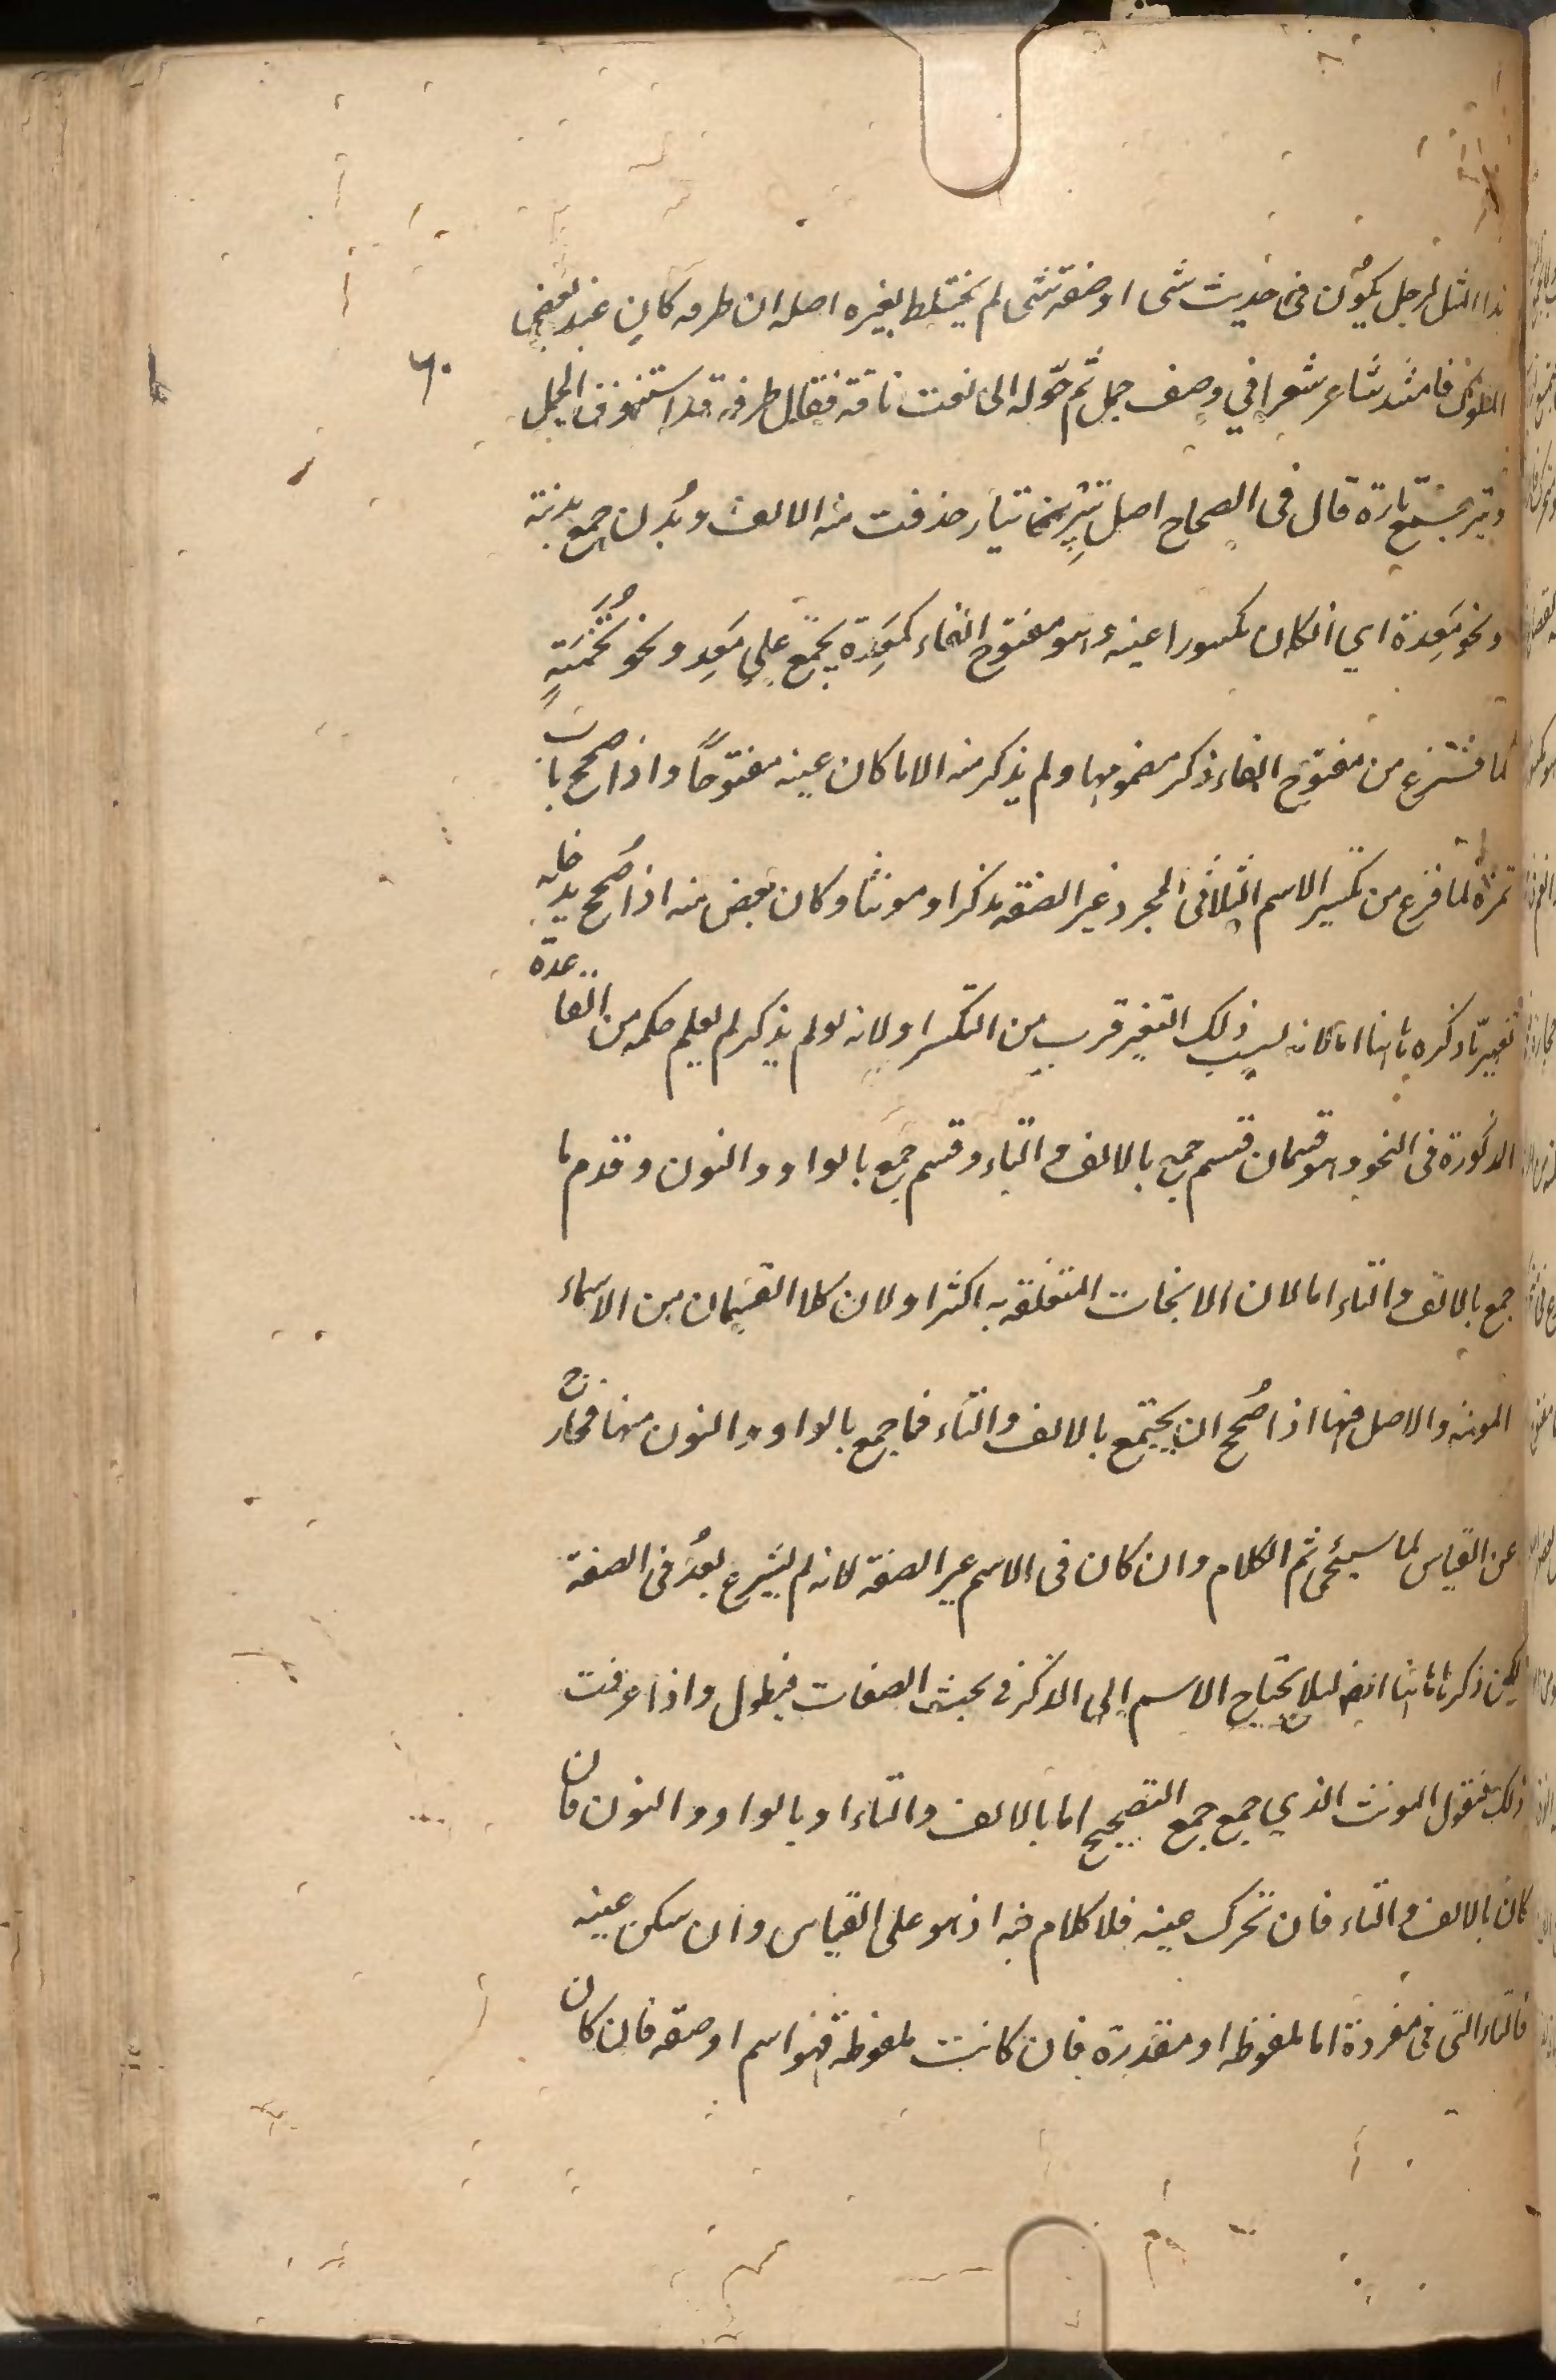 هذا المثل لرجل يكون فى حديث شئ او صفة شئ لم يختلط بغيره اصله ان طرفه كان عند بعض
الملوك فانشد شاعر شعرا في وصف جمل ثم حوّله الى نعت ناقة فقال طرفه قد استنوق الجمل
٦٠
وتير جمع تارة قال فى الصحاح اصل تير تيار حذفت منه الالف وبُدن جمع بدنة
ونحو مَعِدة اي انكان مكسورا عينه وهو مفتوح الفاء كمَعِدة يجمع على مَعِد ونحو تُخَمَةٍ
لما فرغ من مفتوح الفاء ذكر مضمومها ولم يذكر منه الا ما كان عينه مفتوحًا واذا صحح باب
تمرة لما فرغ من تكسير الاسم الثلاثى المجرد غير الصفة مذكرا ومونثا وكان بعض منه اذا صُحح يدخله
تغيير ما ذكره هاهنا اما لانه لسبب ذلك التغير قرب من التكسير او لانه لو لم يذكر لم يعلم حكمه من القاعدة
المذكورة فى النحو وهو قسمان قسم جمع بالالف والتاء وقسم جمع بالواو والنون وقدم ما
جمع بالالف والتاء اما لان الابحاث المتعلقة به اكثر او لان كلا القسمان من الاسماء
المونثة والاصل فيها اذا صُحح ان يجتمع بالالف والتاء فما جمع بالواو والنون منها فخارج
عن القياس لما سيجئ ثم الكلام وان كان فى الاسم غير الصفة لانه لم يشرع بعدُ فى الصفة
لكن ذكر هاهنا ايضا ليلا يحتاج الاسم الى الذكر فى بحث الصفات فيطول واذا عرفت
ذلك فنقول المونث الذي جمع جمع التصحيح اما بالالف والتاء او بالواو والنون فان
كان بالالف والتاء فان تحرك عينه فلا كلام فيه اذ هو على القياس وان سكن عينه
فالتاء التى فى مفردة اما ملفوظه او مقدرة فان كانت ملفوظة فهو اسم او صفه فان كان